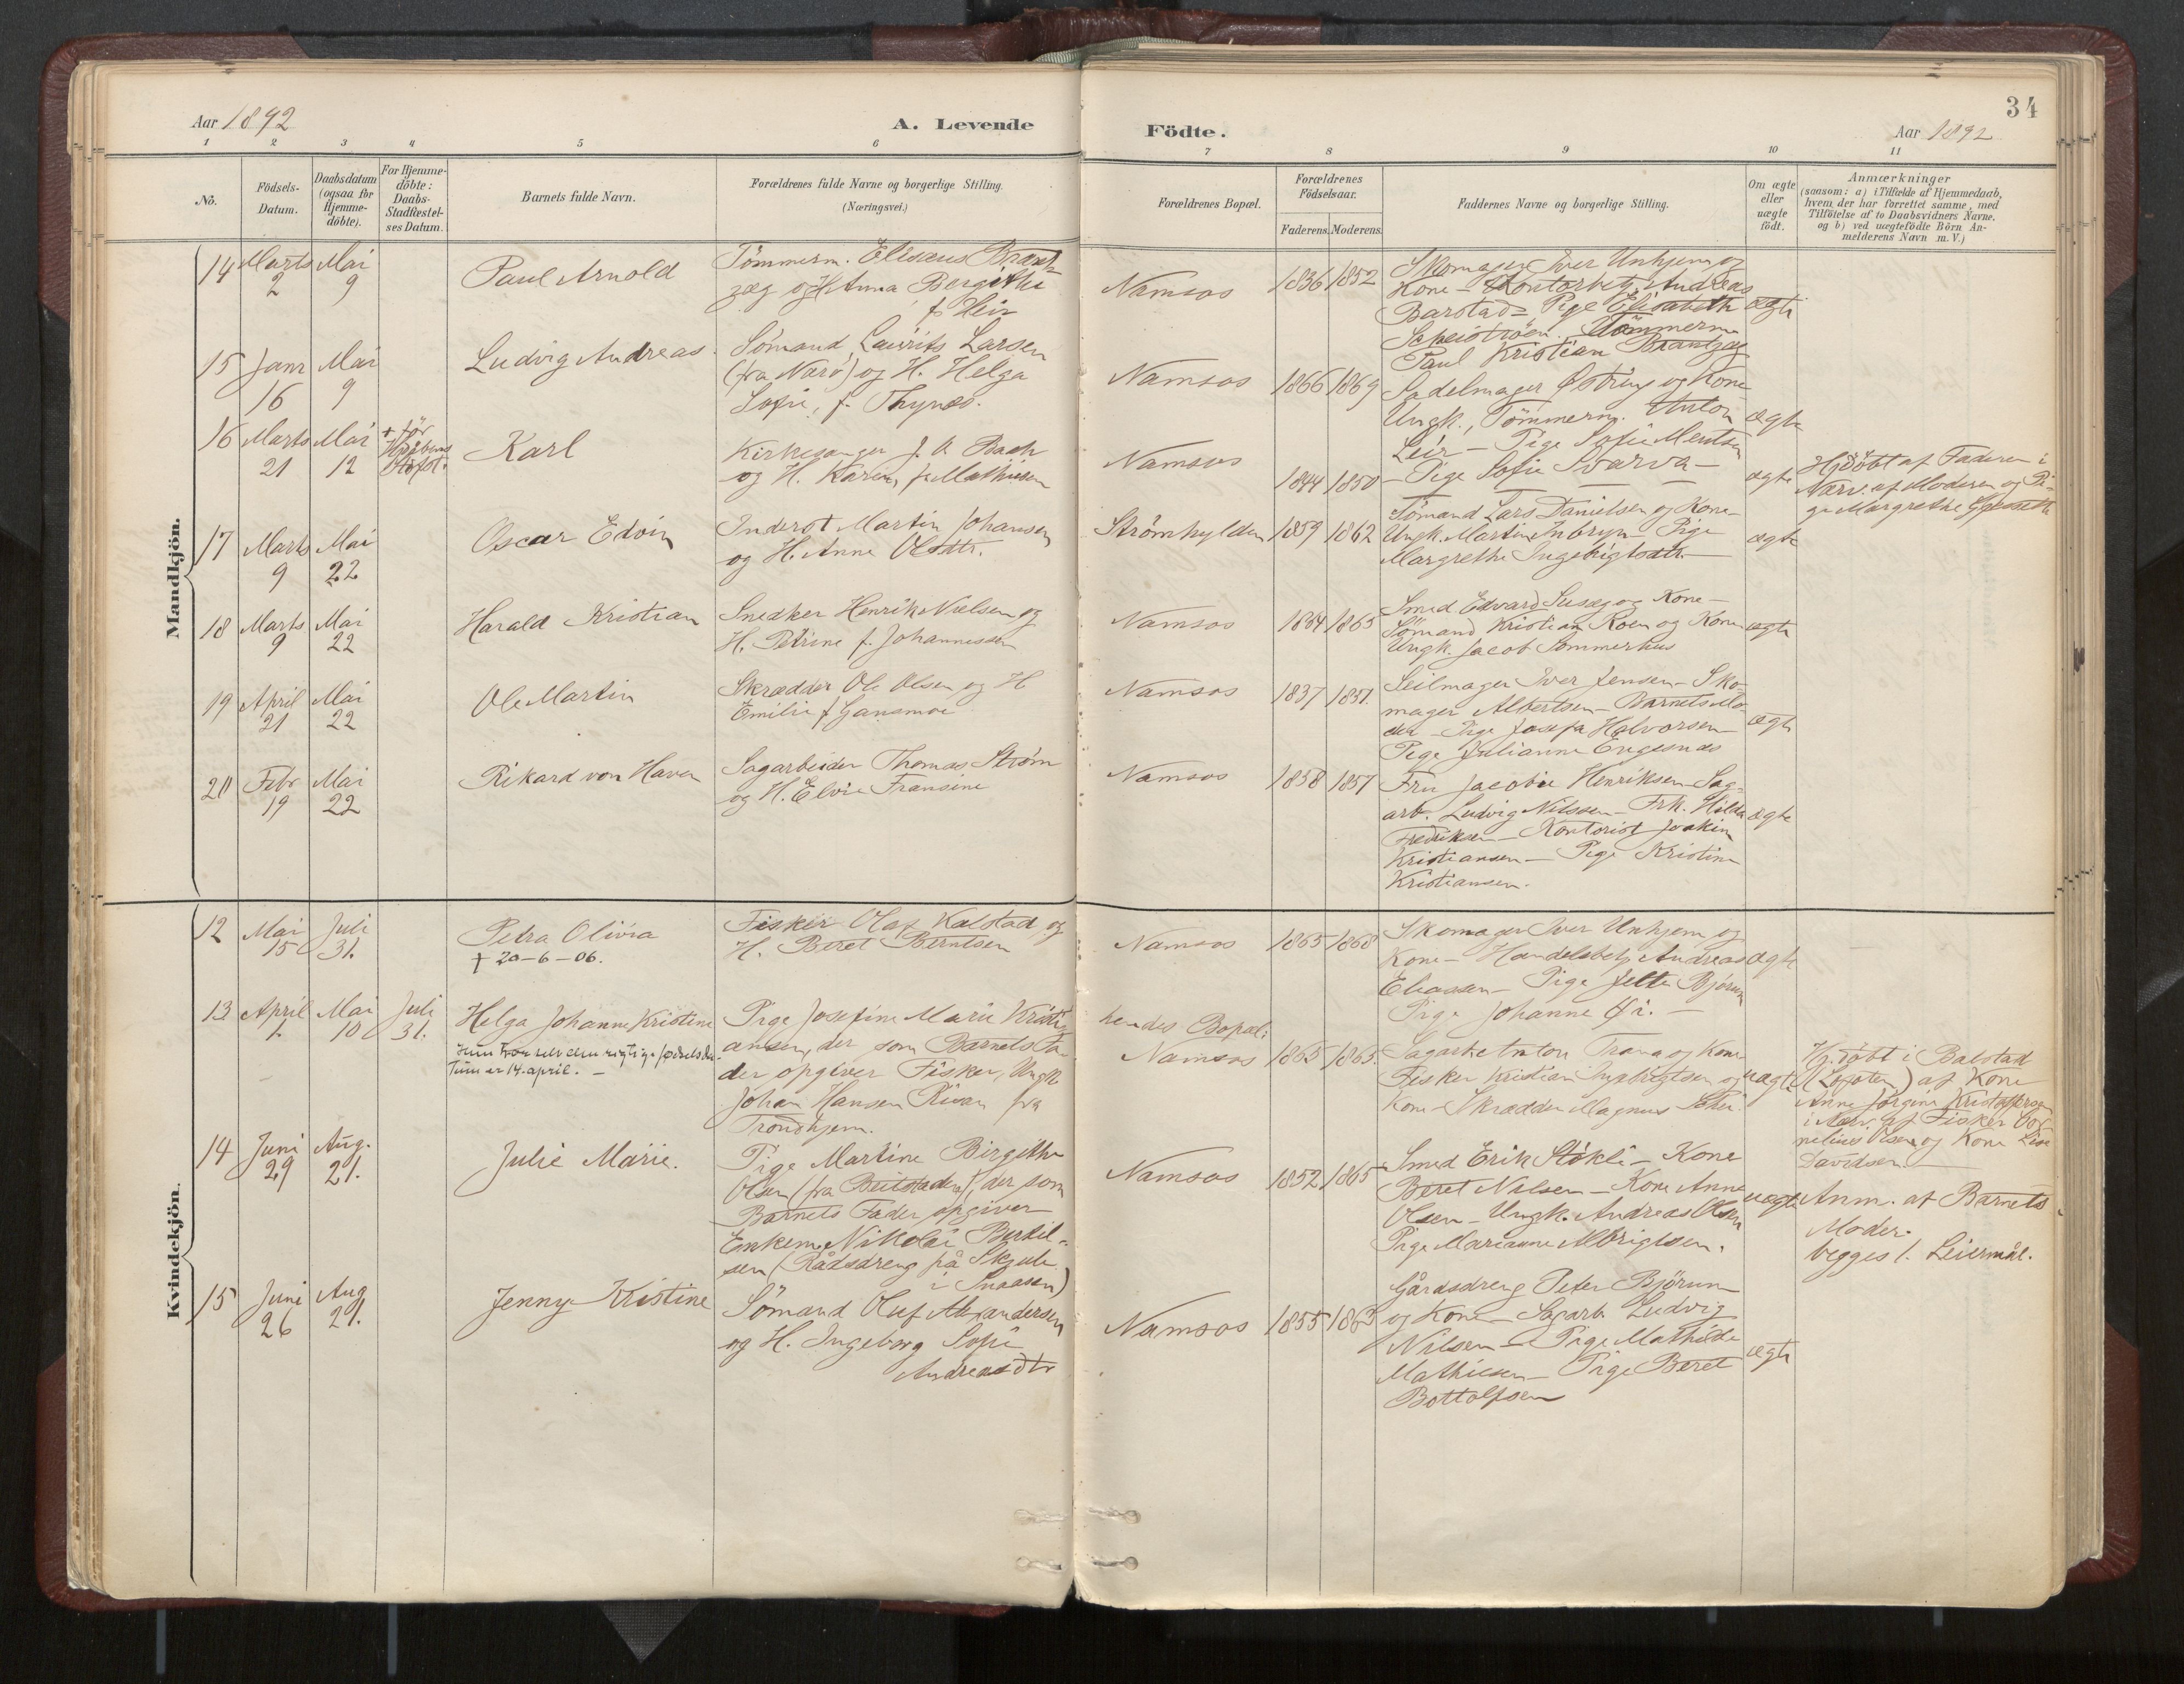 Aar 1892
A. Levende
Födte.
Aar 1892
34
1 2 3 4 5 6 7 8 9 10 11
No.
Födsels-
Datum.
Daabsdatum
(ogsaa for
Hjemme-
döbte).
For Hjemme-
döbte:
Daabs-
Stadfæstel-
ses Datum.
Barnets fulde Navn.
Forældrenes fulde Navne og borgerlige Stilling.
(Næringsvei.)
Forældrenes Bopæl.
Forældrenes
Födselsaar.
Faderens. Moderens.
Faddernes Navne og borgerlige Stilling.
Om ægte
eller
uægte
födt.
Anmærkninger
(saasom: a) i Tilfælde af Hjemmedaab,
hvem der har forrettet samme, med
Tilföielse af to Daabsvidners Navne,
og b) ved uægtefödte Börn An-
melderens Navn m. V.)
Mandkjön.
14
Marts
2
Mai
9
Paul Arnold
Tömmerm. Eliseus Brant-
zæg og H. Anna Bergithe
f. Leir
Namsos
1836 1852
Skomager Iver Unhjem og
Kone - Kontorbetj. Andreas
Barstad - Pige Elisabeth
Scheistrøen - Tömmerm.
Paul Kristian Brantzæg
ægte
15
Janr
16
Mai
9
Ludvig Andreas
Sömand Laurits Larsen
(fra Nærö) og H. Helga
Sofie, f. Thynes.
Namsos
1866 1869
Sadelmager Østring og Kone
Ungk., Tömmerm. Anton
Leir - Pige Sofie Mentsen
- Pige Sofie Svarva -
ægte
16
Marts
21
Mai
12
Karl
Kirkesanger J. A. Bach
og H. Karen, f. Mathiesen
Namsos
1844 1850
ægte
Hj.döbt af Faderen i
Nærv. af Moderen og Pi-
ge Margrethe
17
Marts
9
Mai
22
Oscar Edvin
Inderst Martin Johansen
og H. Anne Olsdtr.
Strömhylden
1859 1862
Sömand Lars Danielsen og Kone
Ungk. Martin Inbryn - Pige
Margrethe Ingebrigtsdtr. -
ægte
18
Marts
9
Mai
22
Harald Kristian
Snedker Henrik Nielsen og
H. Petrine f. Johannessen
Namsos
1864 1865
Smed Edvard Suseg og Kone -
Sömand Kristian Roen og Kone
Ungk. Jacob Sommerhus
ægte
19
April
21
Mai
22
Ole Martin
Skrædder Ole Olsen og H
Emilie f. Gansmoe
Namsos
1837 1851.
Seilmager Iver Jensen - Sko-
mager Albertsen - Barnets Mo-
der - Pige Josefa Halvorsen
Pige Julianne Engesnes
ægte
20
Febr
19
Mai
22
Rikard von Haven
Sagarbeider Thomas Ström
og H. Elvie Fransine
Namsos
1858 1857
Fru Jacobie Henriksen - Sag-
arb. Ludvig Nilssen - Frk. Hilda
Fredriksen - Kontorist Joakim
Kristiansen - Pige Kristine
Kristiansen.
ægte
Kvindekjön.
12
Mai
15
Juli
31.
Petra Olivia
† 20-6-06.
Fisker Olaf Kalstad og
H. Beret Berntsen
Namsos
1865 1868
Skomager Iver Unhjem og
Kone - Handelsbetj. Andreas
Eliassen - Pige Jette Bjørum
Pige Johanne Øi. -
ægte
13
April
1.
Mai
10
Juli
31.
Helga Johanne Kristine
tum er 14. april. -
Pige Josefine Marie Kristi-
ansen, der som Barnets Fa-
der opgiver Fisker, Ungk.
Johan Hansen Risan fra
Trondhjem.
hendes Bopæl:
Namsos
1865 1865.
Sagarb. Anton Trana og Kone
Fisker Kristian Ingebrigtsen og
Kone - Skrædder Magnus
uægte
Hj.döbt i Balstad
(Lofoten) af Kone
Anne Jörgine Kristoffersen
i Nærv. af Fisker Cor-
nelius Olsen og Kone Lise
Davidsen.
14
Juni
29
Aug.
21.
Julie Marie.
Pige Martine Birgithe
Olsen (fra Beitstaden), der som
Barnets Fader opgiver
Enkem. Nikolai Bertil-
sen (Rådsdreng på
i Snaasen)
Namsos
1852 1865
Smed Erik Stökli - Kone
Beret Nilsen - Kone Anne
Olsen - Ungk. Andreas Olsen
Pige Marianne Albrigtsen.
uægte
Anm. af Barnets
Moder.
begges 1. Leiermål.
15
Juni
26
Aug
21.
Jenny Kristine
Sömand Oluf Alexandersen
og H. Ingeborg Sofie
Andreasdtr
Namsos
1855 1863
Gårdsdreng Peter Bjørum
og Kone - Sagarb. Ludvig
Nilsen - Pige Mathilde
Mathiesen - Pige Beret
Bottolfsen
ægte